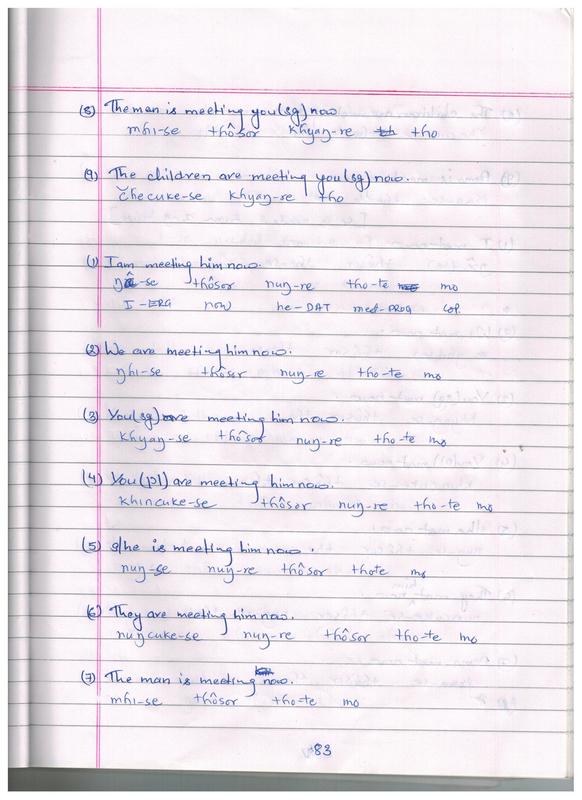 (8) The man is meeting you(sg) now
mhi-se thôsor khyaŋ-re tho
(9) The children are meeting you(sg) now.
čhecuke-se khyaŋ-re tho
(1) I am meeting him now.
ŋa-se thôsor nuŋ-re tho-te mo
I-ERG now he-DAT meet-PROG cop.
(2) We are meeting him now.
ŋhi-se thôsor nuŋ-re tho-te mo
(3) You(sg) are meeting him now.
khyaŋ-se thôsor nuŋ-re tho-te mo
(4) You(pl) are meeting him now.
khincuke-se thôsor nuŋ-re tho-te mo
(5) s/he is meeting him now.
nuŋ-se nuŋ-re thôsor thote mo
(6) They are meeting him now.
nuŋcuke-se nuŋ-re thôsor tho-te mo
(7) The man is meeting now.
mhi-se thôsor tho-te mo
83